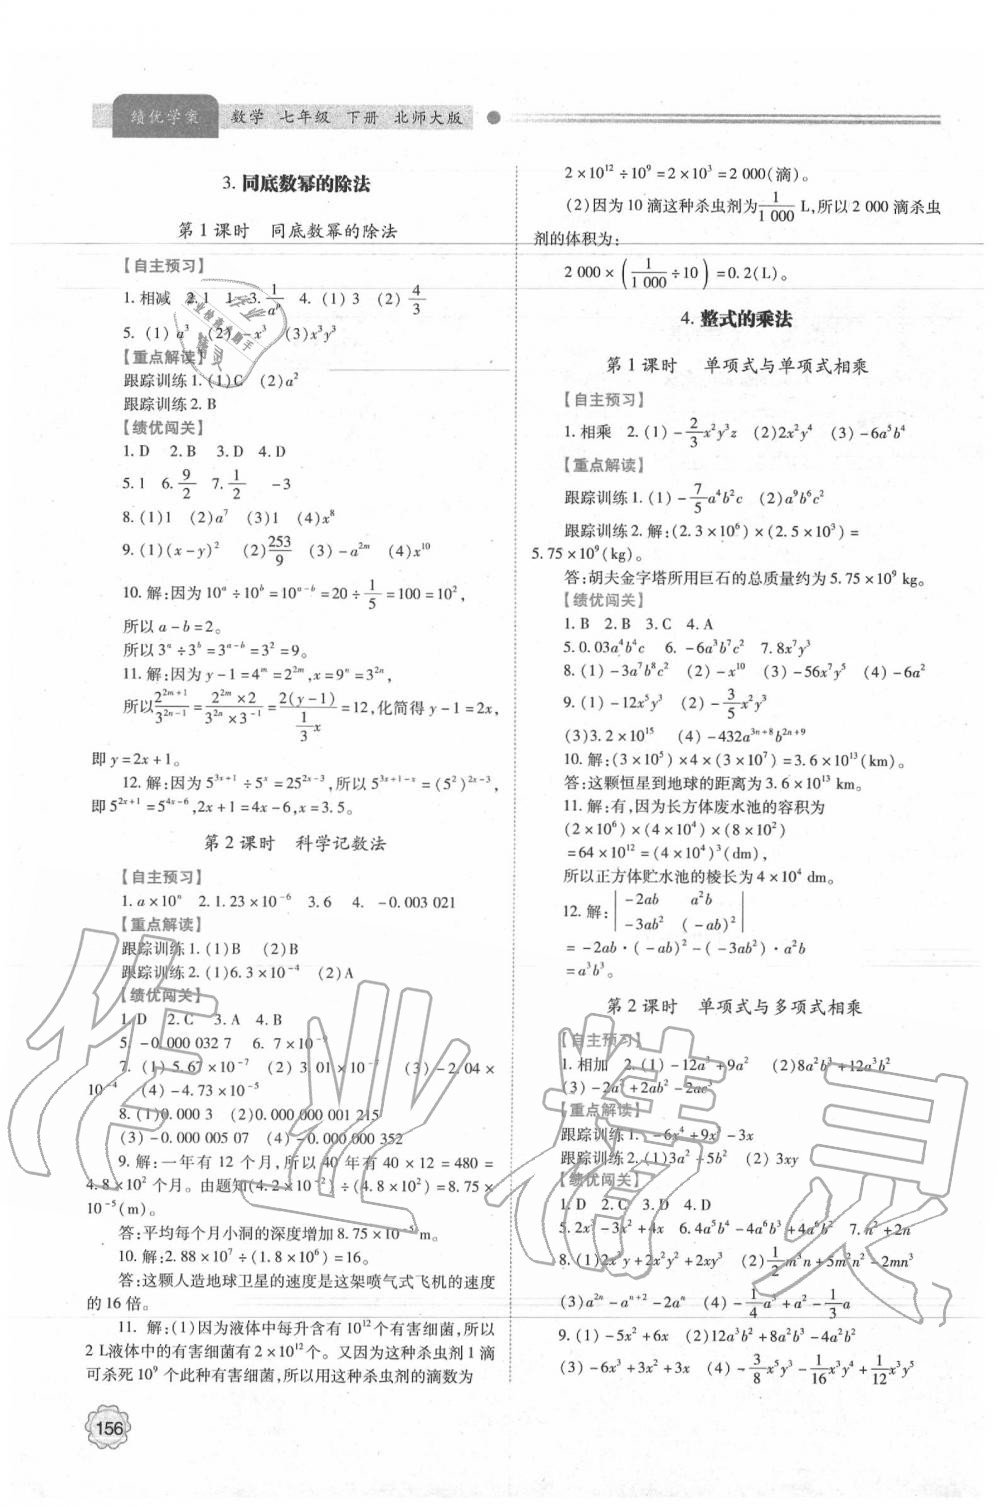 绩优学案 数学 七年级 下册 北师大版
3. 同底数幂的除法
第1课时 同底数幂的除法
【自主预习】
1. 相减 2. 1 1 3. 1/a^p 4. (1) 3 (2) 4/3
5. (1) a³ (2) -x³ (3)x³y³
【重点解读】
跟踪训练1. (1)C (2)a²
跟踪训练2. B
【绩优闯关】
1. D 2. B 3. D 4. D
5. 1 6. 9/2 7. 1/2 -3
8. (1)1 (2)a⁷ (3)1 (4)x⁸
9. (1)(x-y)² (2)253/9 (3)-a^{2m} (4)x¹⁰
10. 解:因为10^a÷10^b=10^{a-b}=20÷1/5=100=10²,
所以a-b=2。
所以3^a÷3^b=3^{a-b}=3²=9。
11. 解:因为y-1=4^m=2^{2m},x=9^n=3^{2n},
所以2^{2m+1}/3^{2n-1}=(2^{2m}×2)/(3^{2n}×3^{-1})=2(y-1)/(1/3 x)=12,化简得y-1=2x,
即y=2x+1。
12. 解:因为5^{3x+1}÷5^x=25^{2x-3},所以5^{3x+1-x}=(5²)^{2x-3},
即5^{2x+1}=5^{4x-6},2x+1=4x-6,x=3.5。
第2课时 科学记数法
【自主预习】
1. a×10^n 2. 1.23×10⁻⁶ 3. 6 4. -0.003 021
【重点解读】
跟踪训练1. (1)B (2)B
跟踪训练2. (1)6.3×10⁻⁴ (2)A
【绩优闯关】
1. D 2. C 3. A 4. B
5. -0.000 032 7 6. 7×10
7. (1) 5.67×10⁻⁷ (2) 3.01×10⁻ (3)-2.04×
10⁻⁴ (4)-4.73×10⁻⁵
8. (1)0.000 3 (2)0.000 000 001 215
(3)-0.000 005 07 (4)-0.000 000 352
9. 解:一年有12个月,所以40年有40×12=480=
4.8×10²个月。由题知(4.2×10⁻²)÷(4.8×10²)=8.75×
10⁻⁵(m)。
答:平均每个月小洞的深度增加8.75×10⁻⁵m。
10. 解:2.88×10⁷÷(1.8×10⁶)=16。
答:这颗人造地球卫星的速度是这架喷气式飞机的速度
的16倍。
11. 解:(1)因为液体中每升含有10¹²个有害细菌,所以
2 L液体中的有害细菌有2×10¹²个。又因为这种杀虫剂1滴
可杀死10⁹个此种有害细菌,所以用这种杀虫剂的滴数为
156
2×10¹²÷10⁹=2×10³=2 000(滴)。
(2)因为10滴这种杀虫剂为1/1 000 L,所以2 000滴杀虫
剂的体积为:
2 000×(1/1 000÷10)=0.2(L)。
4. 整式的乘法
第1课时 单项式与单项式相乘
【自主预习】
1. 相乘 2. (1)-2/3x²y³z (2)2x²y⁴ (3)-6a⁵b⁴
【重点解读】
跟踪训练1. (1)-7/5a⁴b²c (2)a⁹b⁶c²
跟踪训练2. 解:(2.3×10⁶)×(2.5×10³)=
5.75×10⁹(kg)。
答:胡夫金字塔所用巨石的总质量约为5.75×10⁹ kg。
【绩优闯关】
1. B 2. B 3. C 4. A
5. 0.03a⁴b⁴c 6. -6a³b⁷c² 7. 8x⁷y³
8. (1)-3a⁷b⁸c² (2)-x¹⁰ (3)-56x⁷y⁵ (4)-6a²
9. (1)-12x⁵y³ (2)-3/5x²y³
(3)3.2×10¹⁵ (4)-432a^{3n+8}b^{2n+9}
10. 解:(3×10⁵)×4×(3×10⁷)=3.6×10¹³(km)。
答:这颗恒星到地球的距离为3.6×10¹³ km。
11. 解:有,因为长方体废水池的容积为
(2×10⁶)×(4×10⁴)×(8×10²)
=64×10¹²=(4×10⁴)³(dm),
所以正方体贮水池的棱长为4×10⁴ dm。
12. 解:| -2ab a²b |
| -3ab² (-ab)² |
=-2ab·(-ab)²-(-3ab²)·a²b
=a³b³。
第2课时 单项式与多项式相乘
【自主预习】
1. 相加 2. (1)-12a³+9a² (2)8a²b³+a²b²
(3)-2a³+2ab²-2ac³
【重点解读】
跟踪训练1. -6x⁴+9x³-3x
跟踪训练2. (1)3a²-5b² (2) 3xy
【绩优闯关】
1. D 2. C 3. D 4. D
5. 2x³-3x²+4x 6. 4a⁵b⁴-4a⁶b³+4a⁶b² 7. n²+2n
8. (1)2x³y+2x²y²+2xy³ (2)1/2m³n+5m²n²-2mn³
(3)a^{2n}-a^{n+2}-2a^n (4)-1/4a³+a²-1/3a
9. (1)-5x²+6x (2)12a³b²+8a²b³-4a²b²
(3)-6x³+3x²+3x (4)-3/8x⁵y³-1/16x³y⁴+1/12x³y⁵
作业精灵